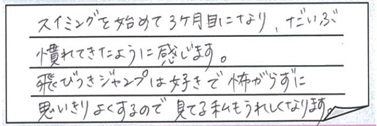 スイミングを始めて3ヶ月目になり、だいぶ
慣れてきたように感じます。
飛びつきジャンプは好きで怖がらずに
思いきりよくするので見てる私もうれしくなります